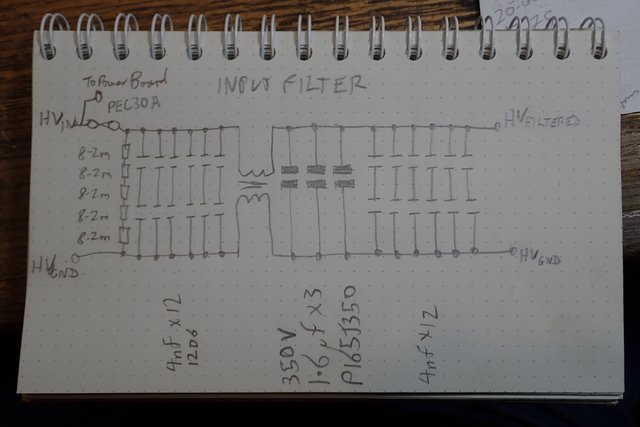 INPUT FILTER
To Power Board
PEC30A
HVIN
HVFILTERED
8-2m
8-2m
8-2m
8-2m
8-2m
HVGND
HVGND
4nf x12
1206
350V
1.6µf x 3
P165J350
4nf x12